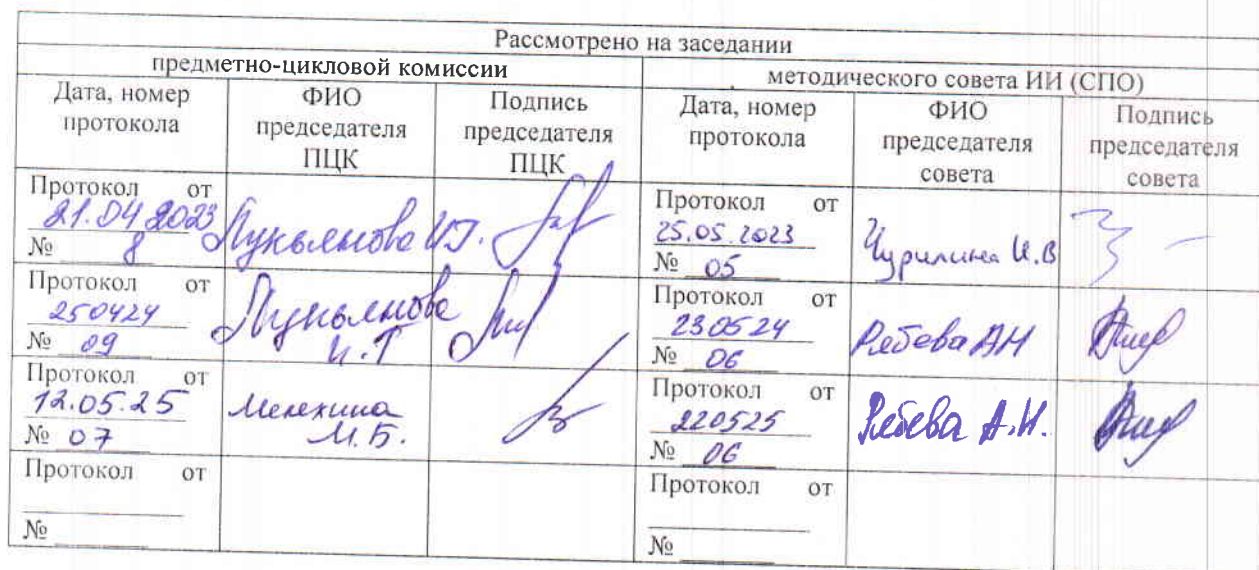 Рассмотрено на заседании
предметно-цикловой комиссии
методического совета ИИ (СПО)
Дата, номер протокола
ФИО председателя ПЦК
Подпись председателя ПЦК
Дата, номер протокола
ФИО председателя совета
Подпись председателя совета
Протокол от
21.04 2023
№ 8
Лукьянова И.Г.
Протокол от
25.05.2023
№ 05
Чурилина И.В
Протокол от
250424
№ 09
Лукьянова
И.Г
Протокол от
230524
№ 06
Рябева АН
Протокол от
12.05.25
№ 07
Мелехина
М.Б.
Протокол от
220525
№ 06
Рябева А.Н.
Протокол от
№
Протокол от
№